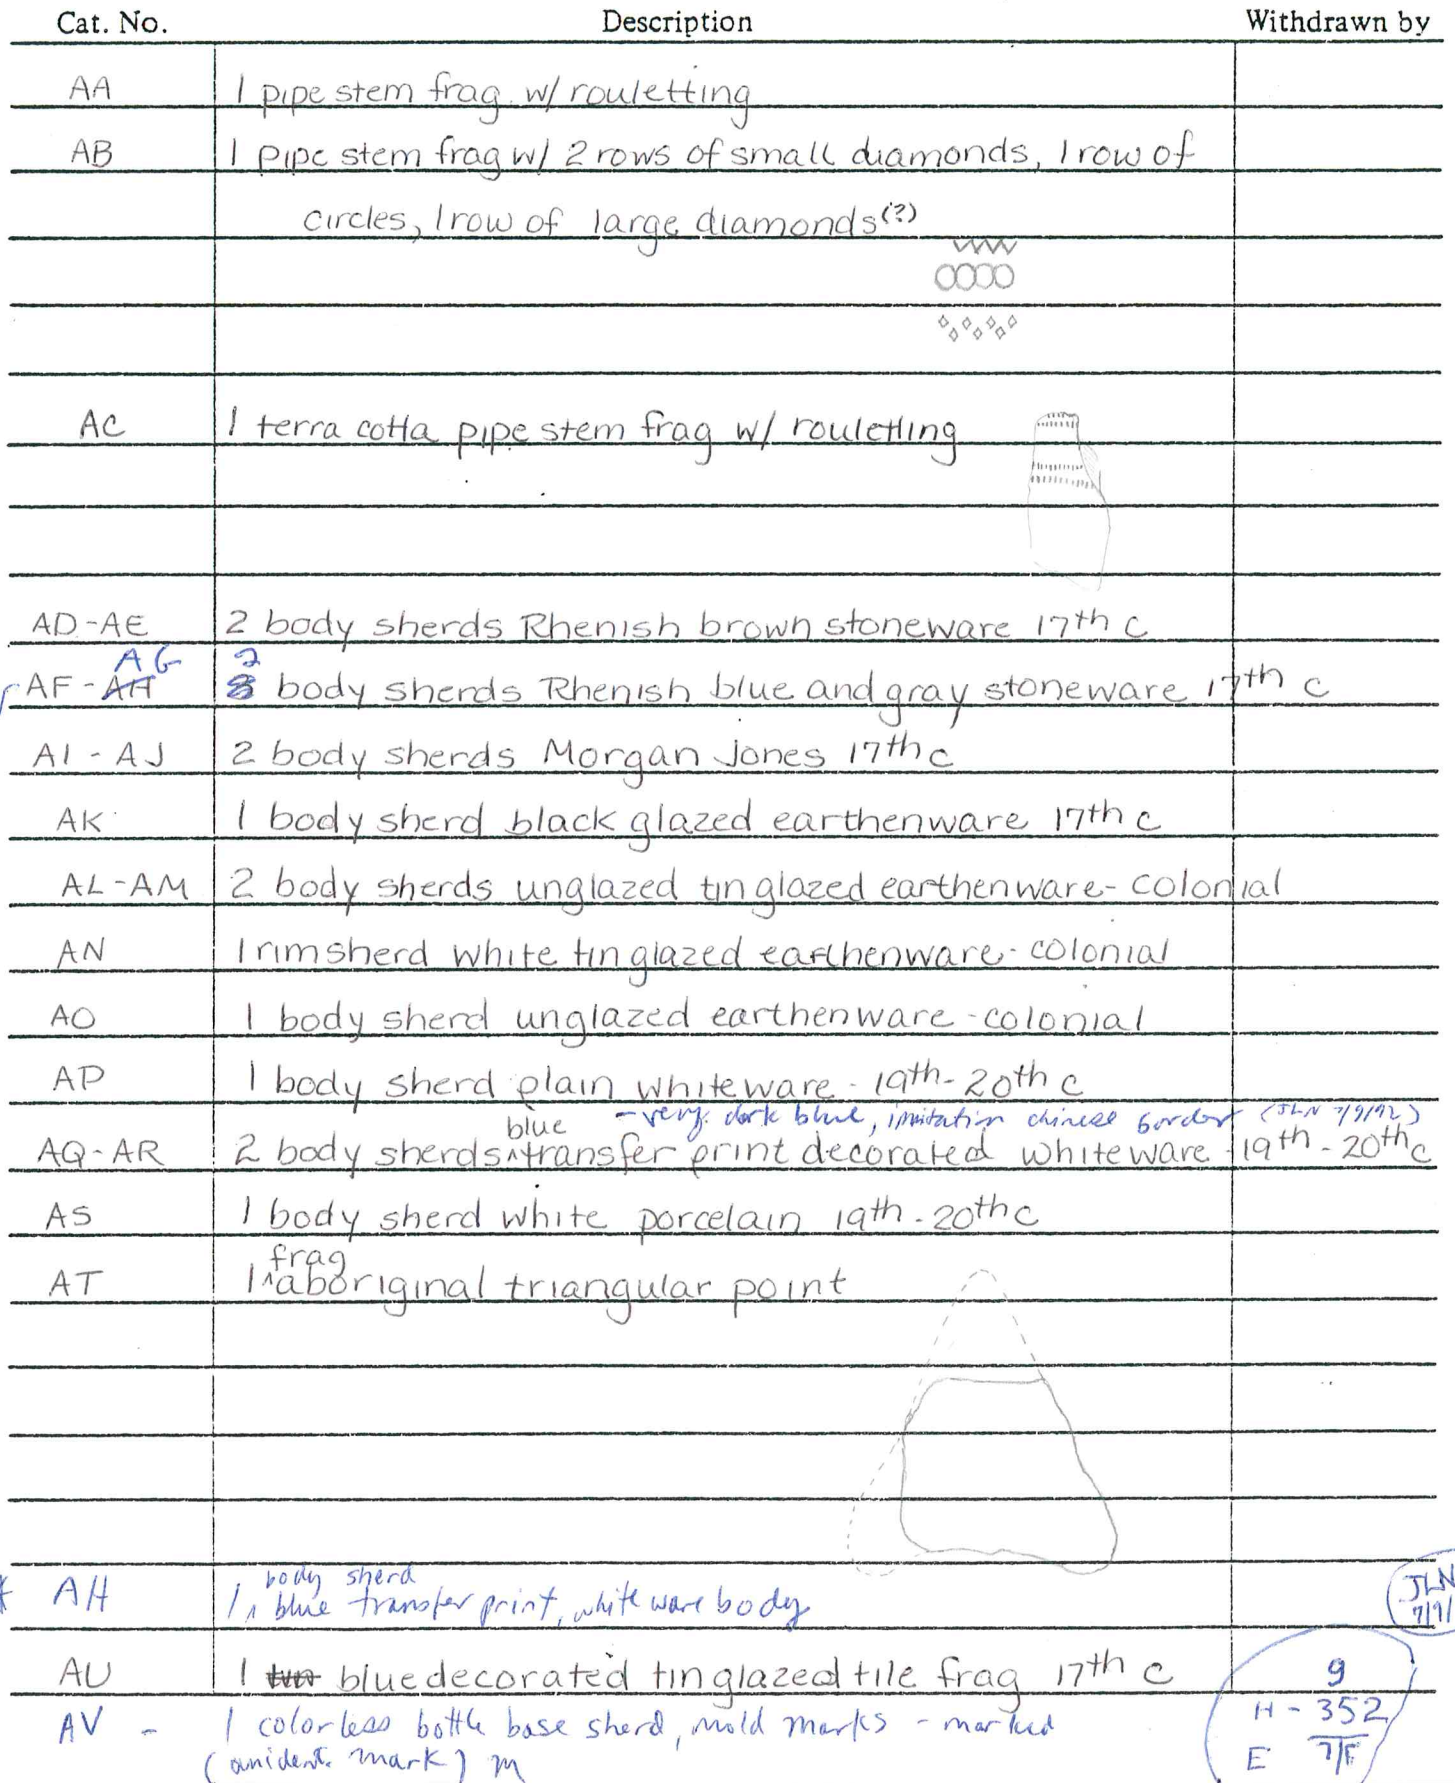 Cat. No. Description Withdrawn by
AA 1 pipe stem frag w/ rouletting
AB 1 pipe stem frag w/ 2 rows of small diamonds, 1 row of
circles, 1 row of large diamonds (?)
AC 1 terra cotta pipe stem frag w/ rouletting
AD-AE 2 body sherds Rhenish brown stoneware 17th c
AG 2
AF-AH 3 body sherds Rhenish blue and gray stoneware 17th c
AI - AJ 2 body sherds Morgan Jones 17th c
AK 1 body sherd black glazed earthenware 17th c
AL-AM 2 body sherds unglazed tin glazed earthenware- colonial
AN 1 rim sherd white tin glazed earthenware- colonial
AO 1 body sherd unglazed earthenware - colonial
AP 1 body sherd plain whiteware - 19th-20th c
blue - very dark blue, imitation chinese border (JLN 7/9/92)
AQ-AR 2 body sherds ^ transfer print decorated whiteware - 19th - 20th c
AS 1 body sherd white porcelain 19th-20th c
frag
AT 1 ^ aboriginal triangular point
body sherd
* AH 1 ^ blue transfer print, white ware body
JLN
7/9/
AU 1 blue decorated tin glazed tile frag 17th c
AV - 1 colorless bottle base sherd, mold marks - marked
(unident. mark) m
9
H - 352
E 7/F